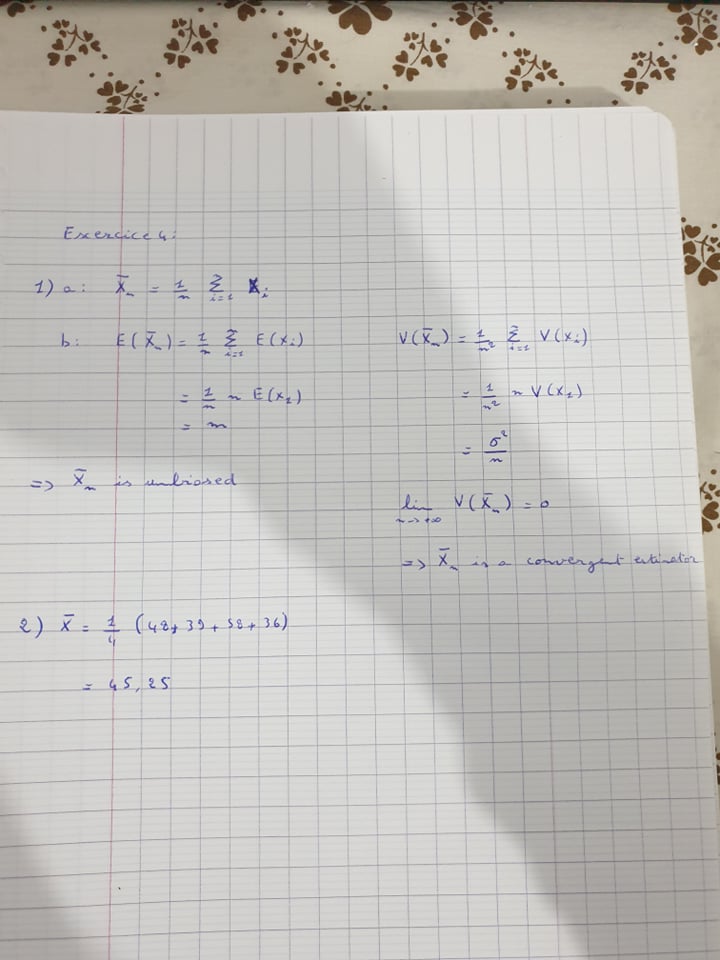 Exercice 4:
1) a: X̄ₙ = 1/n Σᵢ₌₁ⁿ Xᵢ
b: E(X̄ₙ) = 1/n Σᵢ₌₁ⁿ E(Xᵢ)
= 1/n n E(X₁)
= m
=> X̄ₙ is unbiased
V(X̄ₙ) = 1/n² Σᵢ₌₁ⁿ V(Xᵢ)
= 1/n² n V(X₁)
= σ²/n
lim n->+∞ V(X̄ₙ) = 0
=> X̄ₙ is a convergent estimator
2) X̄ = 1/4 (48+39+58+36)
= 45,25